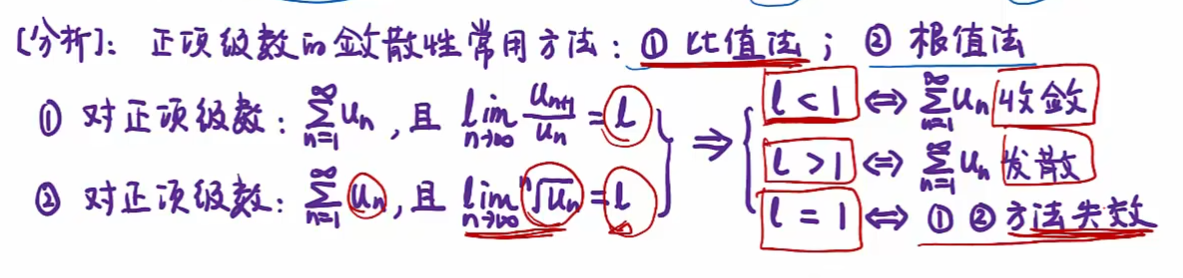 [分析]: 正项级数的敛散性常用方法: ① 比值法; ② 根值法
① 对正项级数: \sum_{n=1}^{\infty} u_n, 且 \lim_{n→∞} \frac{u_{n+1}}{u_n} = l
② 对正项级数: \sum_{n=1}^{\infty} u_n, 且 \lim_{n→∞} \sqrt[n]{u_n} = l
⇒
l < 1 ⇔ \sum_{n=1}^{\infty} u_n 收敛
l > 1 ⇔ \sum_{n=1}^{\infty} u_n 发散
l = 1 ⇔ ① ② 方法失效